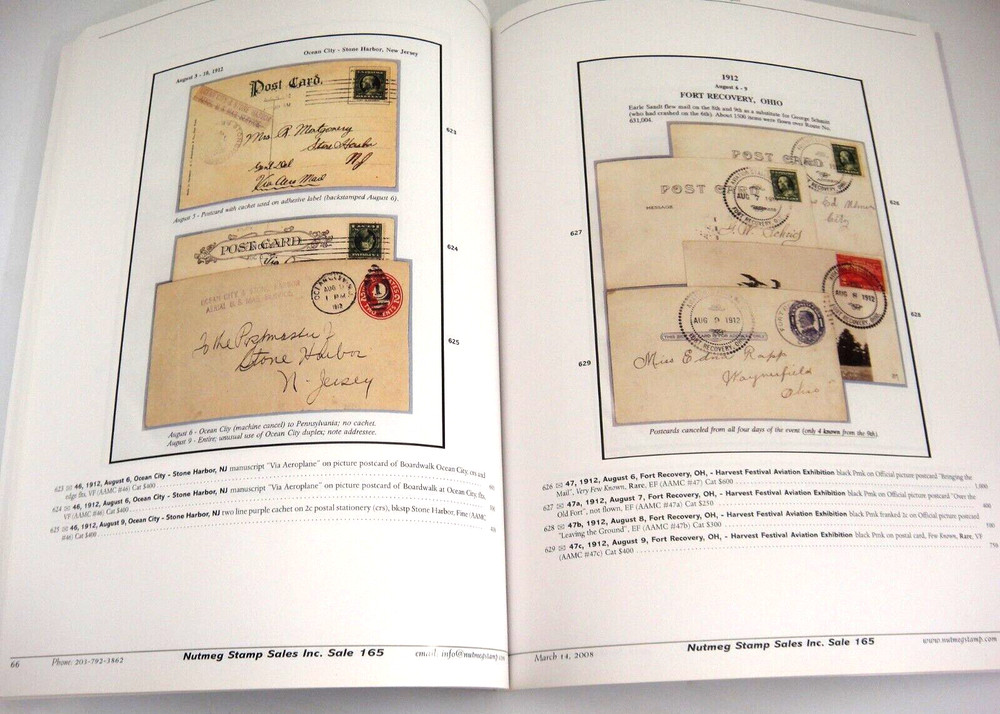 Ocean City - Stone Harbor, New Jersey
August 3 - 10, 1912
Post Card.
Mrs. R. Montgomery
Stone Harbor
NJ
Gen'l Del
Via Aero Mail
623
August 5 - Postcard with cachet used on adhesive label (backstamped August 6).
POST CARD
Via
624
OCEAN CITY & STONE HARBOR
AERIAL U.S. MAIL SERVICE
AUG
1912
1
625
To the Postmaster
Stone Harbor
N- Jersey
August 6 - Ocean City (machine cancel) to Pennsylvania; no cachet.
August 9 - Entire; unusual use of Ocean City duplex; note addressee.
623 ✉ 46, 1912, August 6, Ocean City - Stone Harbor, NJ manuscript "Via Aeroplane" on picture postcard of Boardwalk Ocean City,
edge flts, VF (AAMC #46) Cat $400
624 ✉ 46, 1912, August 6, Ocean City - Stone Harbor, NJ manuscript "Via Aeroplane" on picture postcard of Boardwalk at Ocean City, flts,
VF (AAMC #46) Cat $400
625 ✉ 46, 1912, August 9, Ocean City - Stone Harbor, NJ two line purple cachet on 2c postal stationery (crs), bkstp Stone Harbor, Fine (AAMC
#46) Cat $400
66
Phone: 201-792-3862
Nutmeg Stamp Sales Inc. Sale 165
email: info@nutmegstamp.com
1912
August 6 - 9
FORT RECOVERY, OHIO
Earle Sandt flew mail on the 8th and 9th as a substitute for George Schmitt
(who had crashed on the 6th). About 1500 items were flown over Route No.
631,004.
POST CARD
RECOVERY, OHIO
City
626
POST CARD
MESSAGE
AUG 7 1912
FORT RECOVERY, OHIO
627
AUG 8 1912
FORT RECOVERY, OHIO
628
AUG 9 1912
FORT RECOVERY, OHIO
Miss Edna Rapp
Waynesfield
Ohio
629
Postcards canceled from all four days of the event (only 4 known from the 9th).
626 ✉ 47, 1912, August 6, Fort Recovery, OH, - Harvest Festival Aviation Exhibition black Pmk on Official picture postcard "Bringing the
Mail", Very Few Known, Rare, EF (AAMC #47) Cat $600 1,000
627 ✉ 47a, 1912, August 7, Fort Recovery, OH, - Harvest Festival Aviation Exhibition black Pmk on Official picture postcard "Over the
Old Fort", not flown, EF (AAMC #47a) Cat $250
628 ✉ 47b, 1912, August 8, Fort Recovery, OH, - Harvest Festival Aviation Exhibition black Pmk franked 2c on Official picture postcard
"Leaving the Ground", EF (AAMC #47b) Cat $300
629 ✉ 47c, 1912, August 9, Fort Recovery, OH, - Harvest Festival Aviation Exhibition black Pmk on postal card, Few Known, Rare, VF
(AAMC #47c) Cat $400 750
March 14, 2008
Nutmeg Stamp Sales Inc. Sale 165
www.nutmegstamp.com